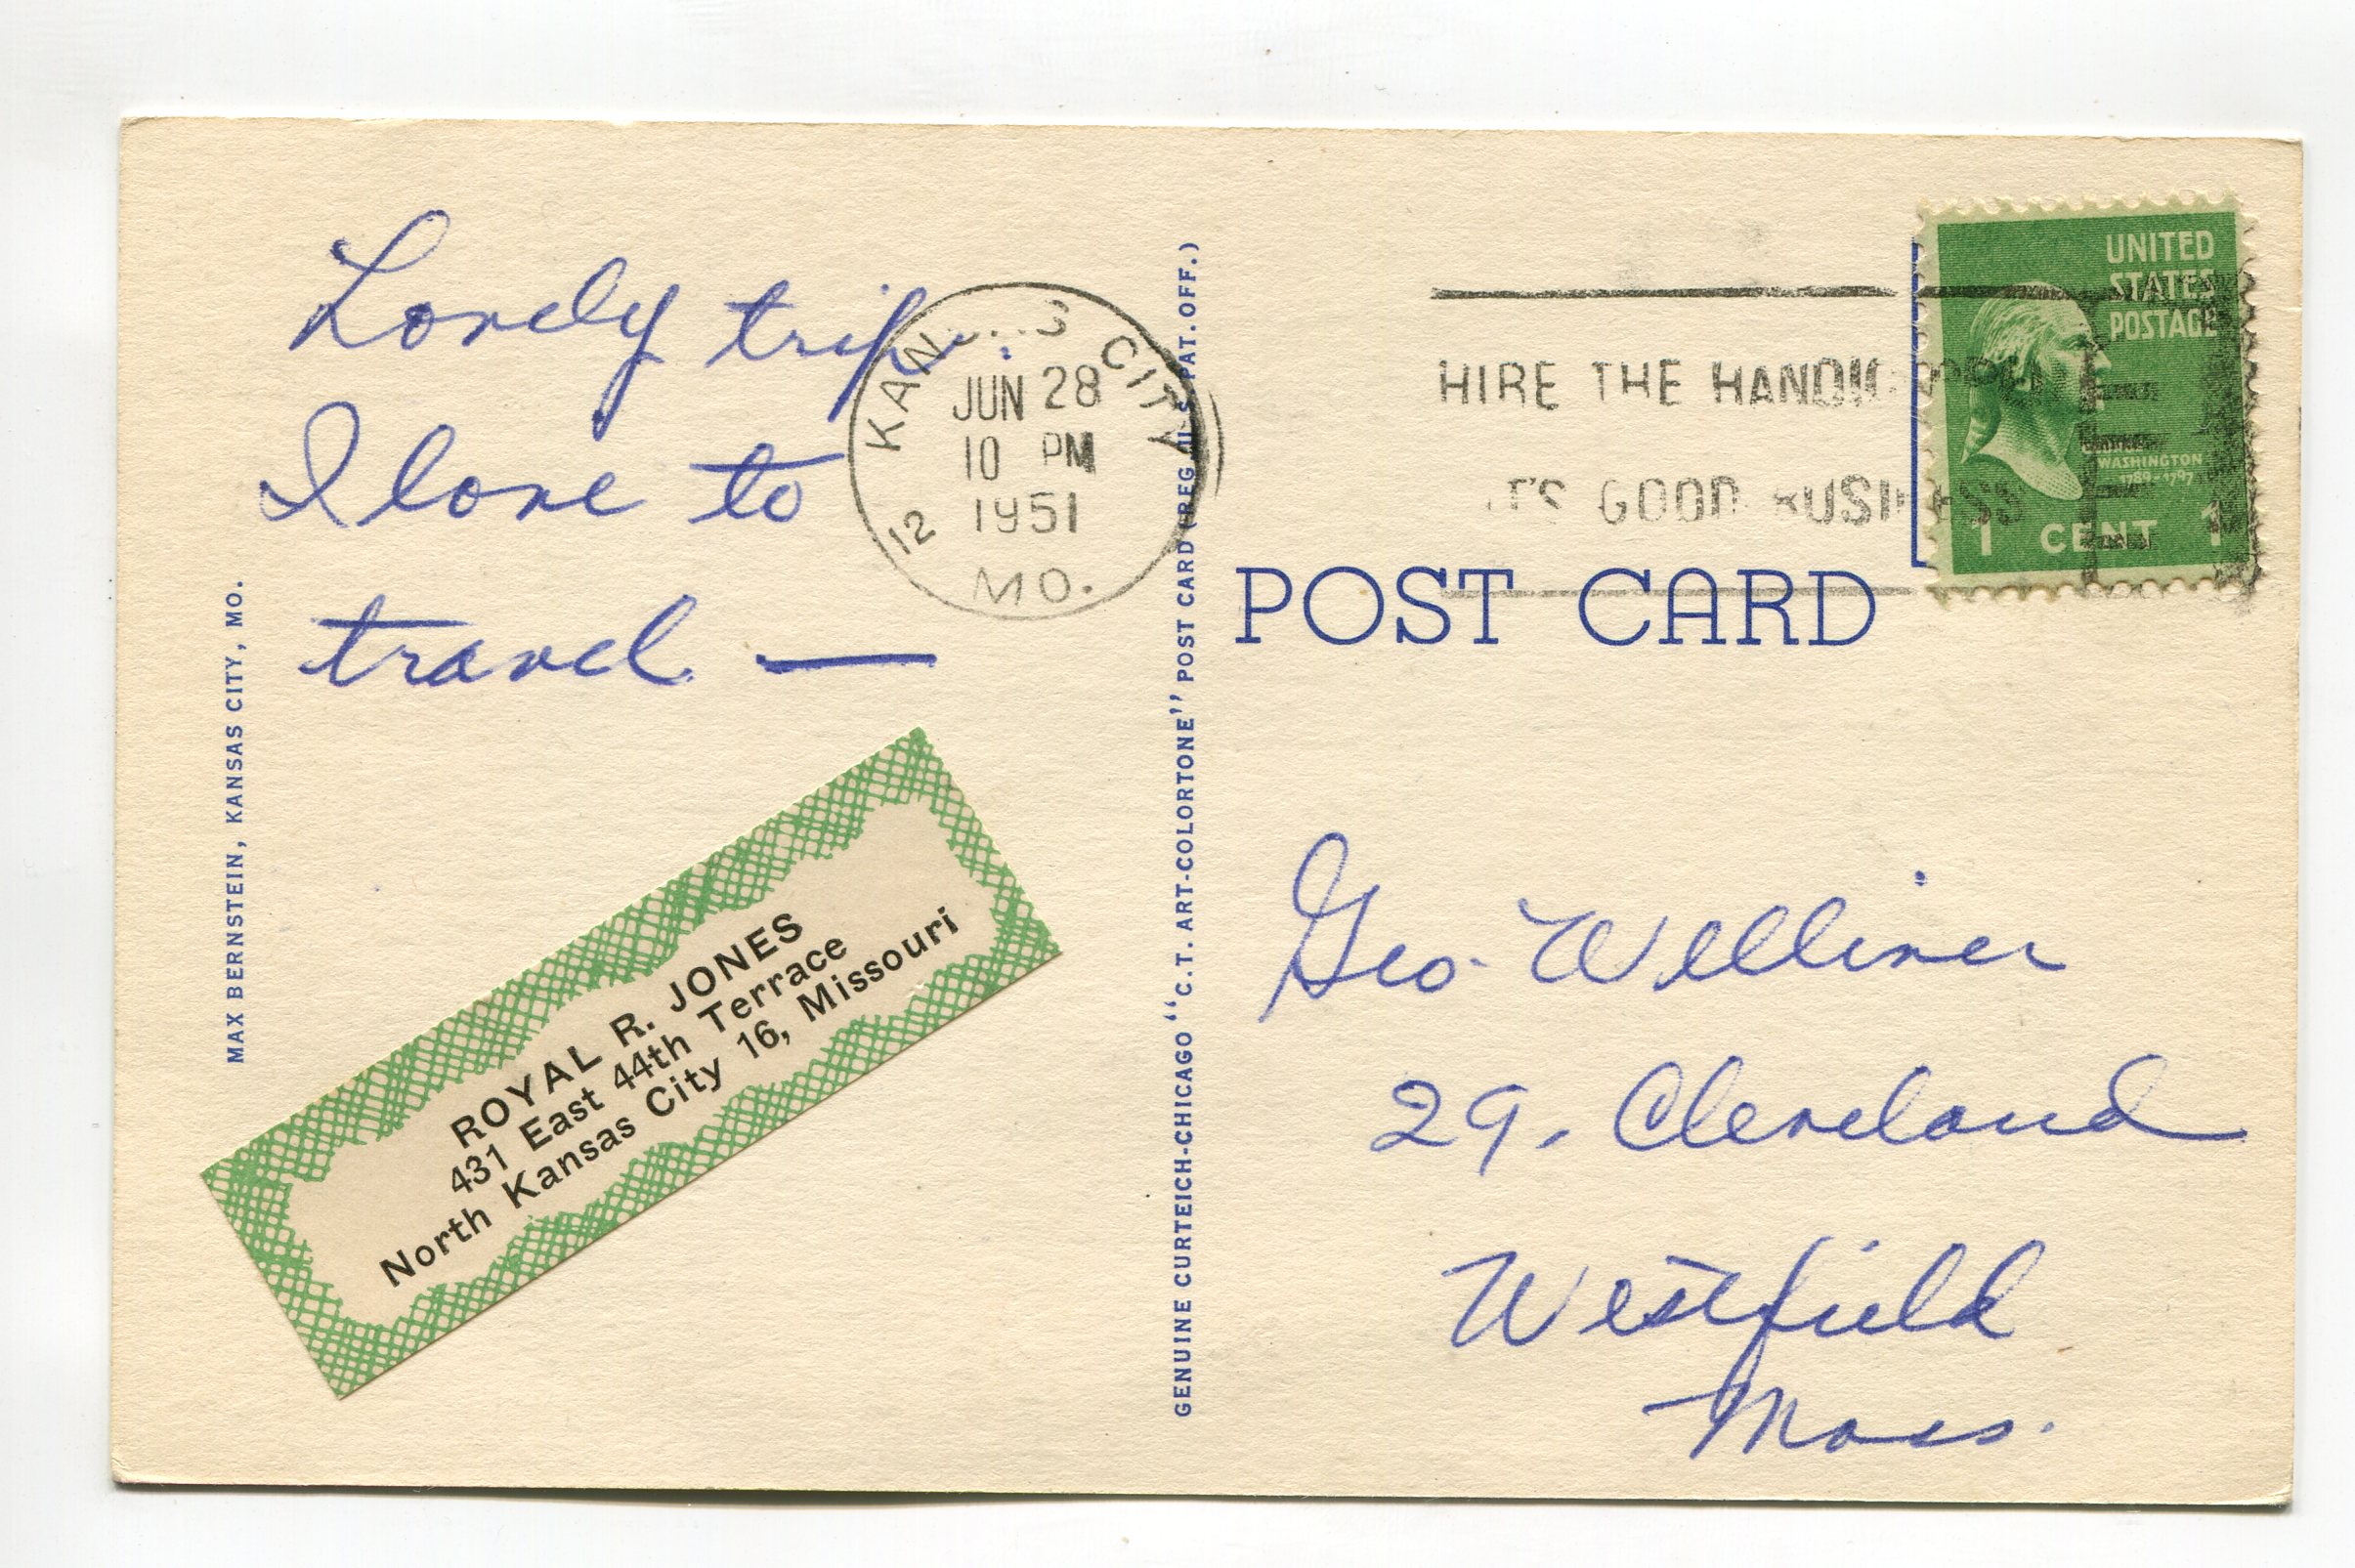 Lovely trip.
I love to
travel —
KAN S CITY
JUN 28
10 PM
1951
12
MO.
HIRE THE
GOOD
UNITED
STATES
POSTAGE
WASHINGTON
1789-1797
1 CENT 1
POST CARD
MAX BERNSTEIN, KANSAS CITY, MO.
GENUINE CURTEICH-CHICAGO "C.T. ART-COLORTONE" POST CARD (REG. U.S. PAT. OFF.)
ROYAL R. JONES
431 East 44th Terrace
North Kansas City 16, Missouri
Geo. Welliver
29, Cleveland
Westfield
Mass.